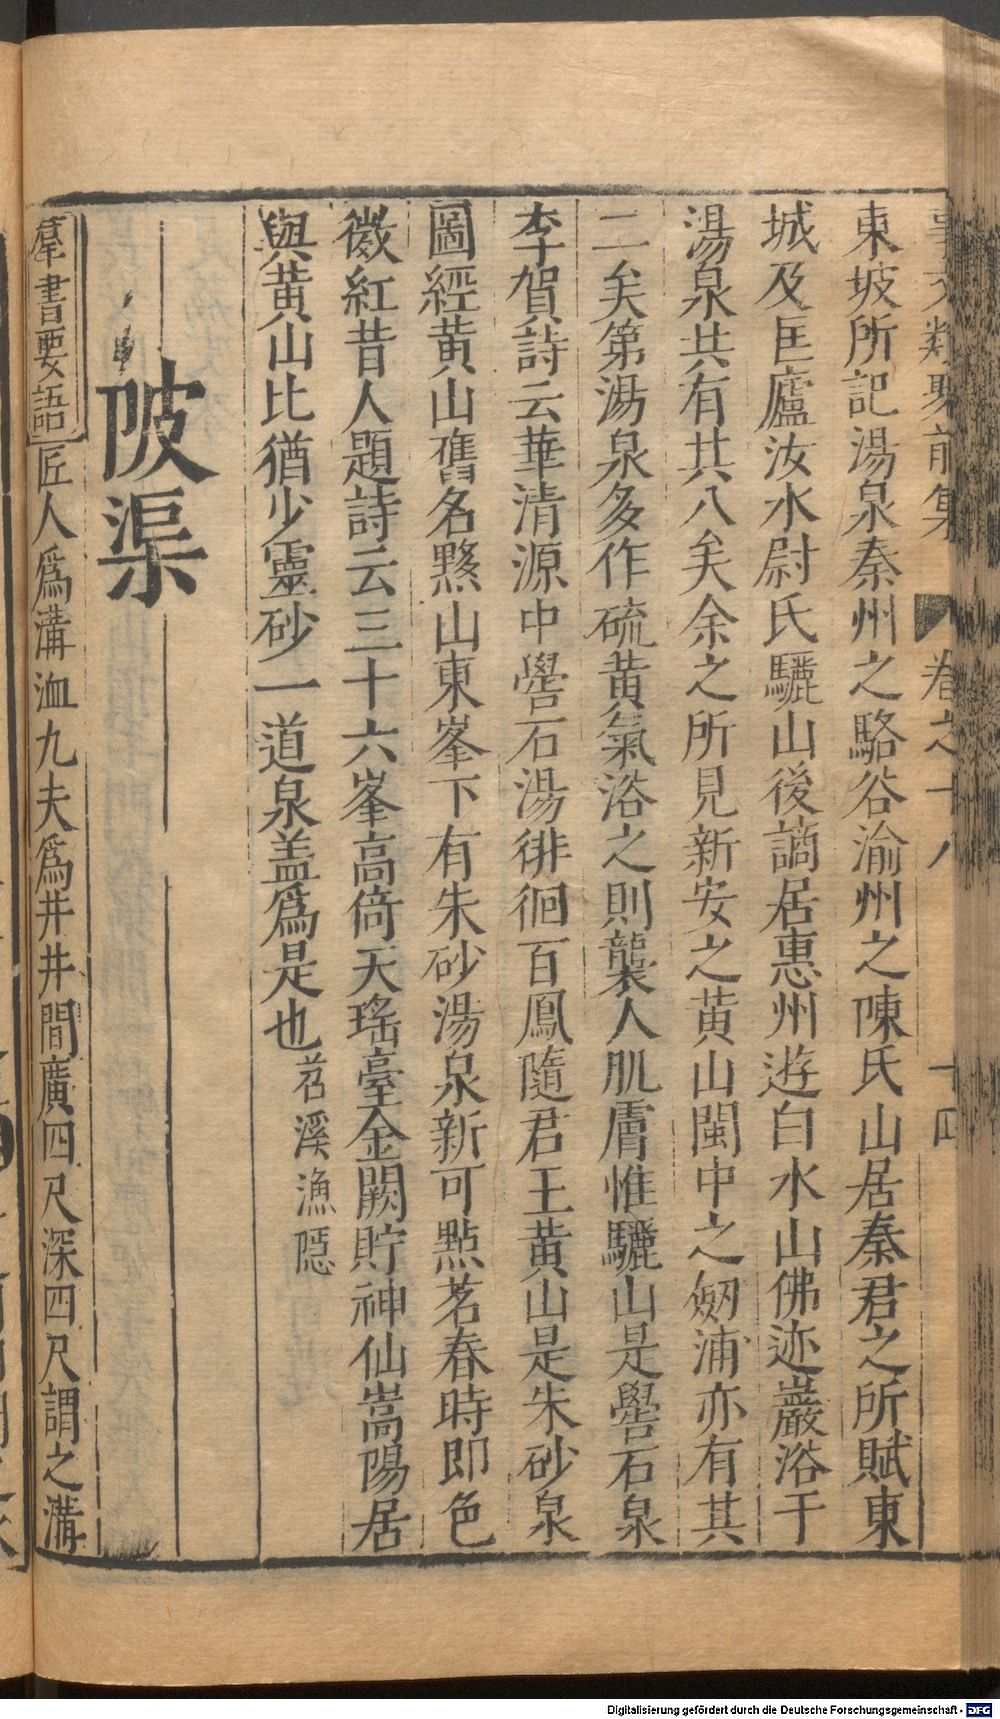 事文類聚前集 卷之十八 十四
東坡所記湯泉秦州之駱谷渝州之陳氏山居秦君之所賦東
城及匡廬汝水尉氏驪山後謫居惠州遊白水山佛迹巖浴于
湯泉共有其八矣余之所見新安之黃山閩中之劒浦亦有其
二矣第湯泉多作硫黃氣浴之則襲人肌膚惟驪山是礜石泉
李賀詩云華清源中礜石湯徘徊百鳳隨君王黃山是朱砂泉
圖經黃山舊名黟山東峯下有朱砂湯泉新可點茗春時即色
微紅昔人題詩云三十六峯高倚天瑤臺金闕貯神仙嵩陽居
與黃山比猶少靈砂一道泉盖爲是也 苕溪漁隠
陂渠
羣書要語 匠人爲溝洫九夫爲井井間廣四尺深四尺謂之溝
Digitalisierung gefördert durch die Deutsche Forschungsgemeinschaft - DFG